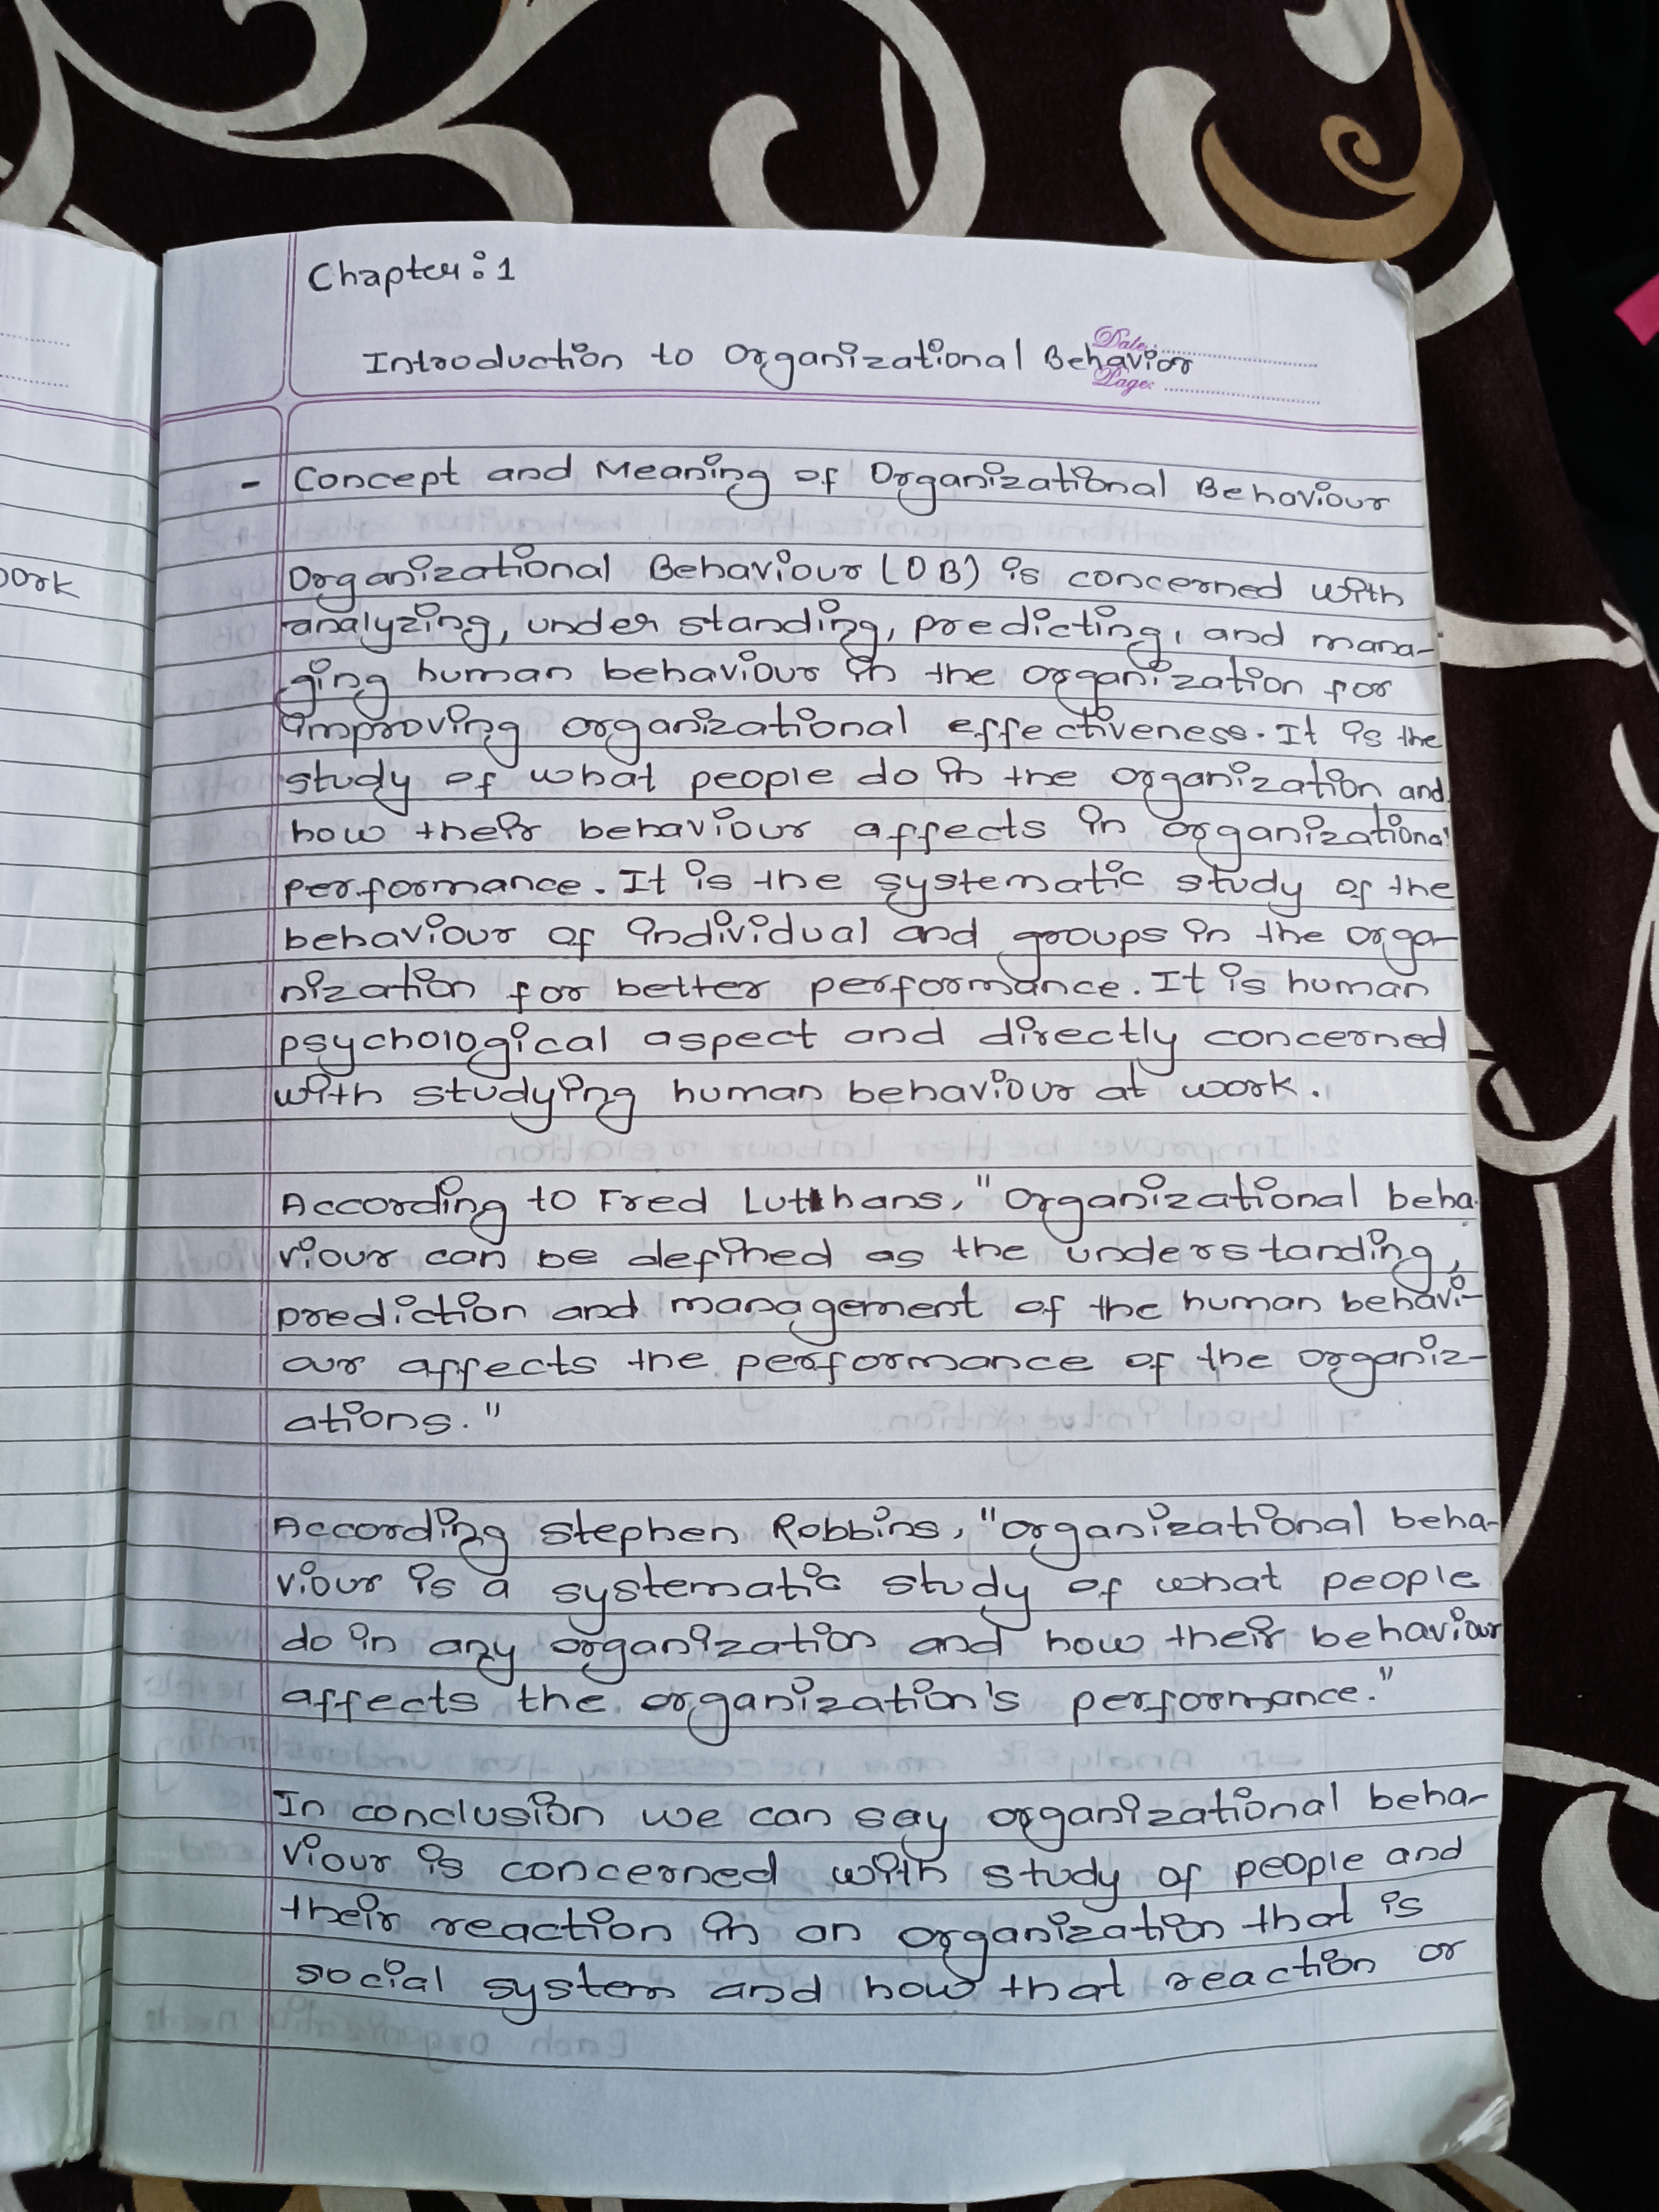 Chapter: 1
Date:
Introduction to Organizational Behavior
Page:
- Concept and Meaning of Organizational Behaviour
Organizational Behaviour (OB) is concerned with
analyzing, under standing, predicting, and mana-
ging human behaviour in the organization for
improving organizational effectiveness. It is the
study of what people do in the organization and
how their behaviour affects in organizational
performance. It is the systematic study of the
behaviour of individual and groups in the orga-
nization for better performance. It is human
psychological aspect and directly concerned
with studying human behaviour at work.
According to Fred Lutthans, "Organizational beha-
viour can be defined as the understanding,
prediction and management of the human behavi-
our affects the performance of the organiz-
ations."
According Stephen Robbins, "Organizational beha-
viour is a systematic study of what people
do in any organization and how their behaviour
affects the organization's performance."
In conclusion we can say organizational beha-
viour is concerned with study of people and
their reaction in an organization that is
social system and how that reaction or